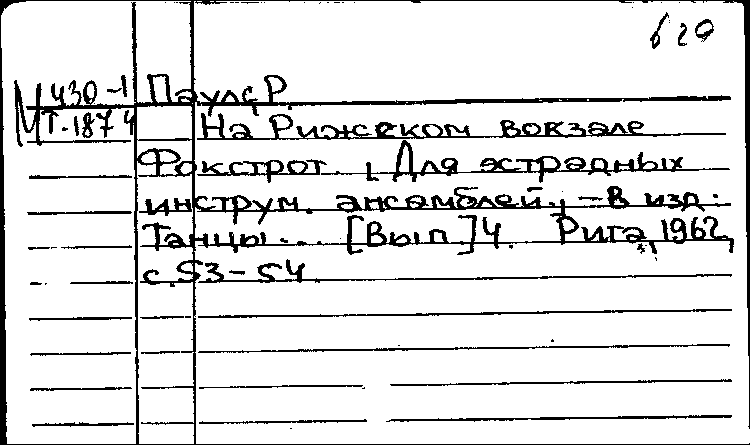 620
М 430-1 Паулс, Р.
Т-187 4 На Рижском вокзале
Фокстрот. [Для эстрадных
инструм. ансамблей], - В изд.:
Танцы... [Вып.] 4. Рига, 1962,
с. 53-54.